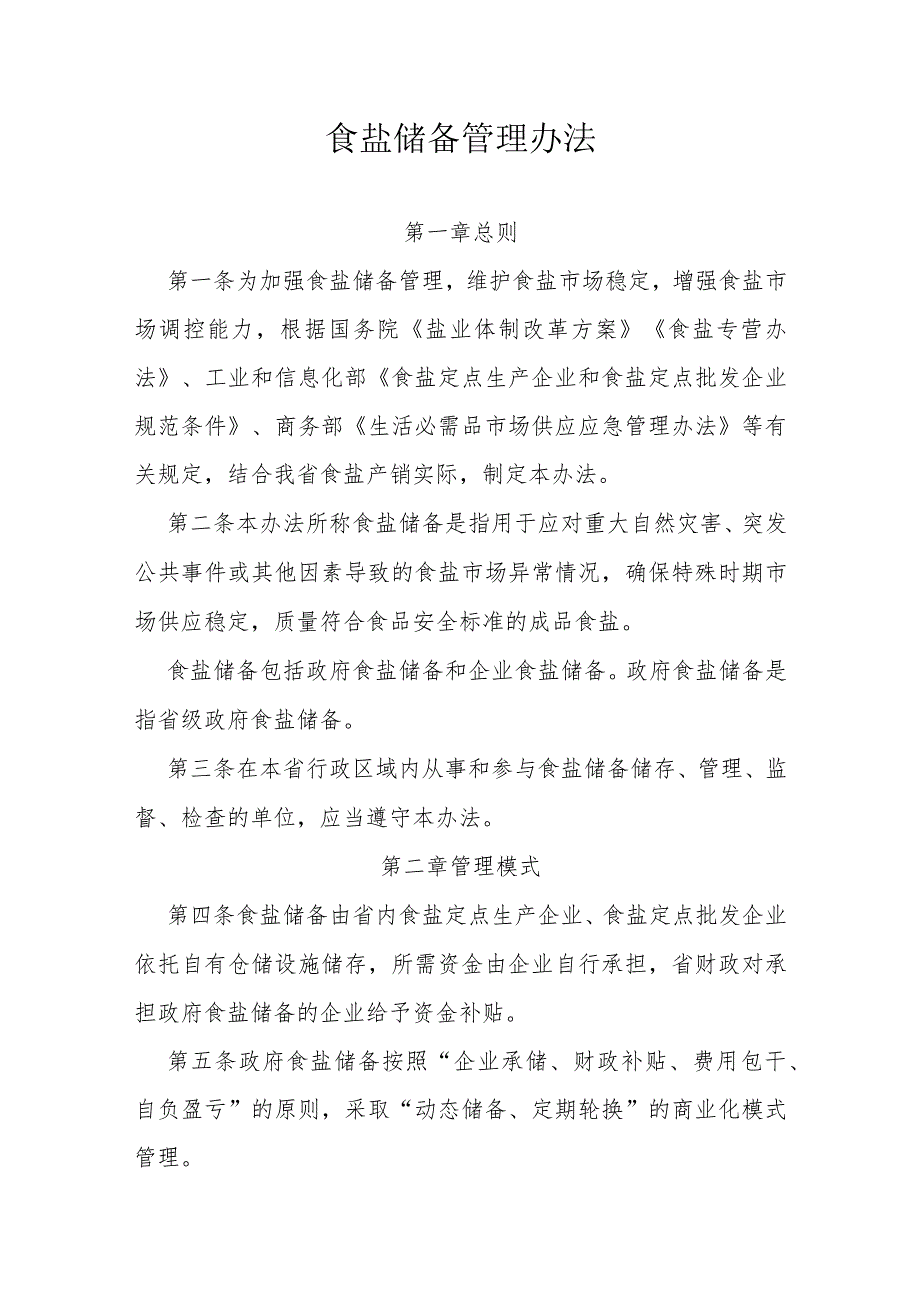 食盐储备管理办法
第一章总则
第一条为加强食盐储备管理，维护食盐市场稳定，增强食盐市
场调控能力，根据国务院《盐业体制改革方案》《食盐专营办
法》、工业和信息化部《食盐定点生产企业和食盐定点批发企业
规范条件》、商务部《生活必需品市场供应应急管理办法》等有
关规定，结合我省食盐产销实际，制定本办法。
第二条本办法所称食盐储备是指用于应对重大自然灾害、突发
公共事件或其他因素导致的食盐市场异常情况，确保特殊时期市
场供应稳定，质量符合食品安全标准的成品食盐。
食盐储备包括政府食盐储备和企业食盐储备。政府食盐储备是
指省级政府食盐储备。
第三条在本省行政区域内从事和参与食盐储备储存、管理、监
督、检查的单位，应当遵守本办法。
第二章管理模式
第四条食盐储备由省内食盐定点生产企业、食盐定点批发企业
依托自有仓储设施储存，所需资金由企业自行承担，省财政对承
担政府食盐储备的企业给予资金补贴。
第五条政府食盐储备按照“企业承储、财政补贴、费用包干、
自负盈亏”的原则，采取“动态储备、定期轮换”的商业化模式
管理。